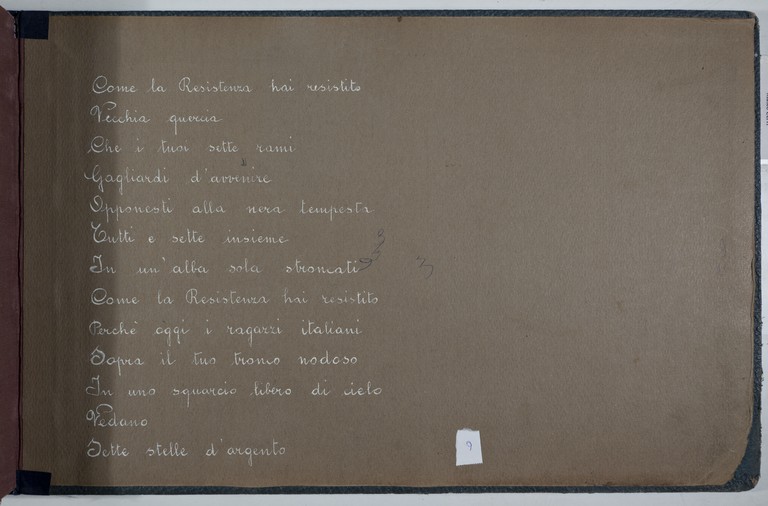 Come la Resistenza hai resistito
Vecchia quercia
Che i tuoi sette rami
Gagliardi d'avvenire
Opponesti alla nera tempesta
Tutti e sette insieme
In un'alba sola stroncati
Come la Resistenza hai resistito
Perchè oggi i ragazzi italiani
Sopra il tuo tronco nodoso
In uno squarcio libero di cielo
Vedano
Sette stelle d'argento